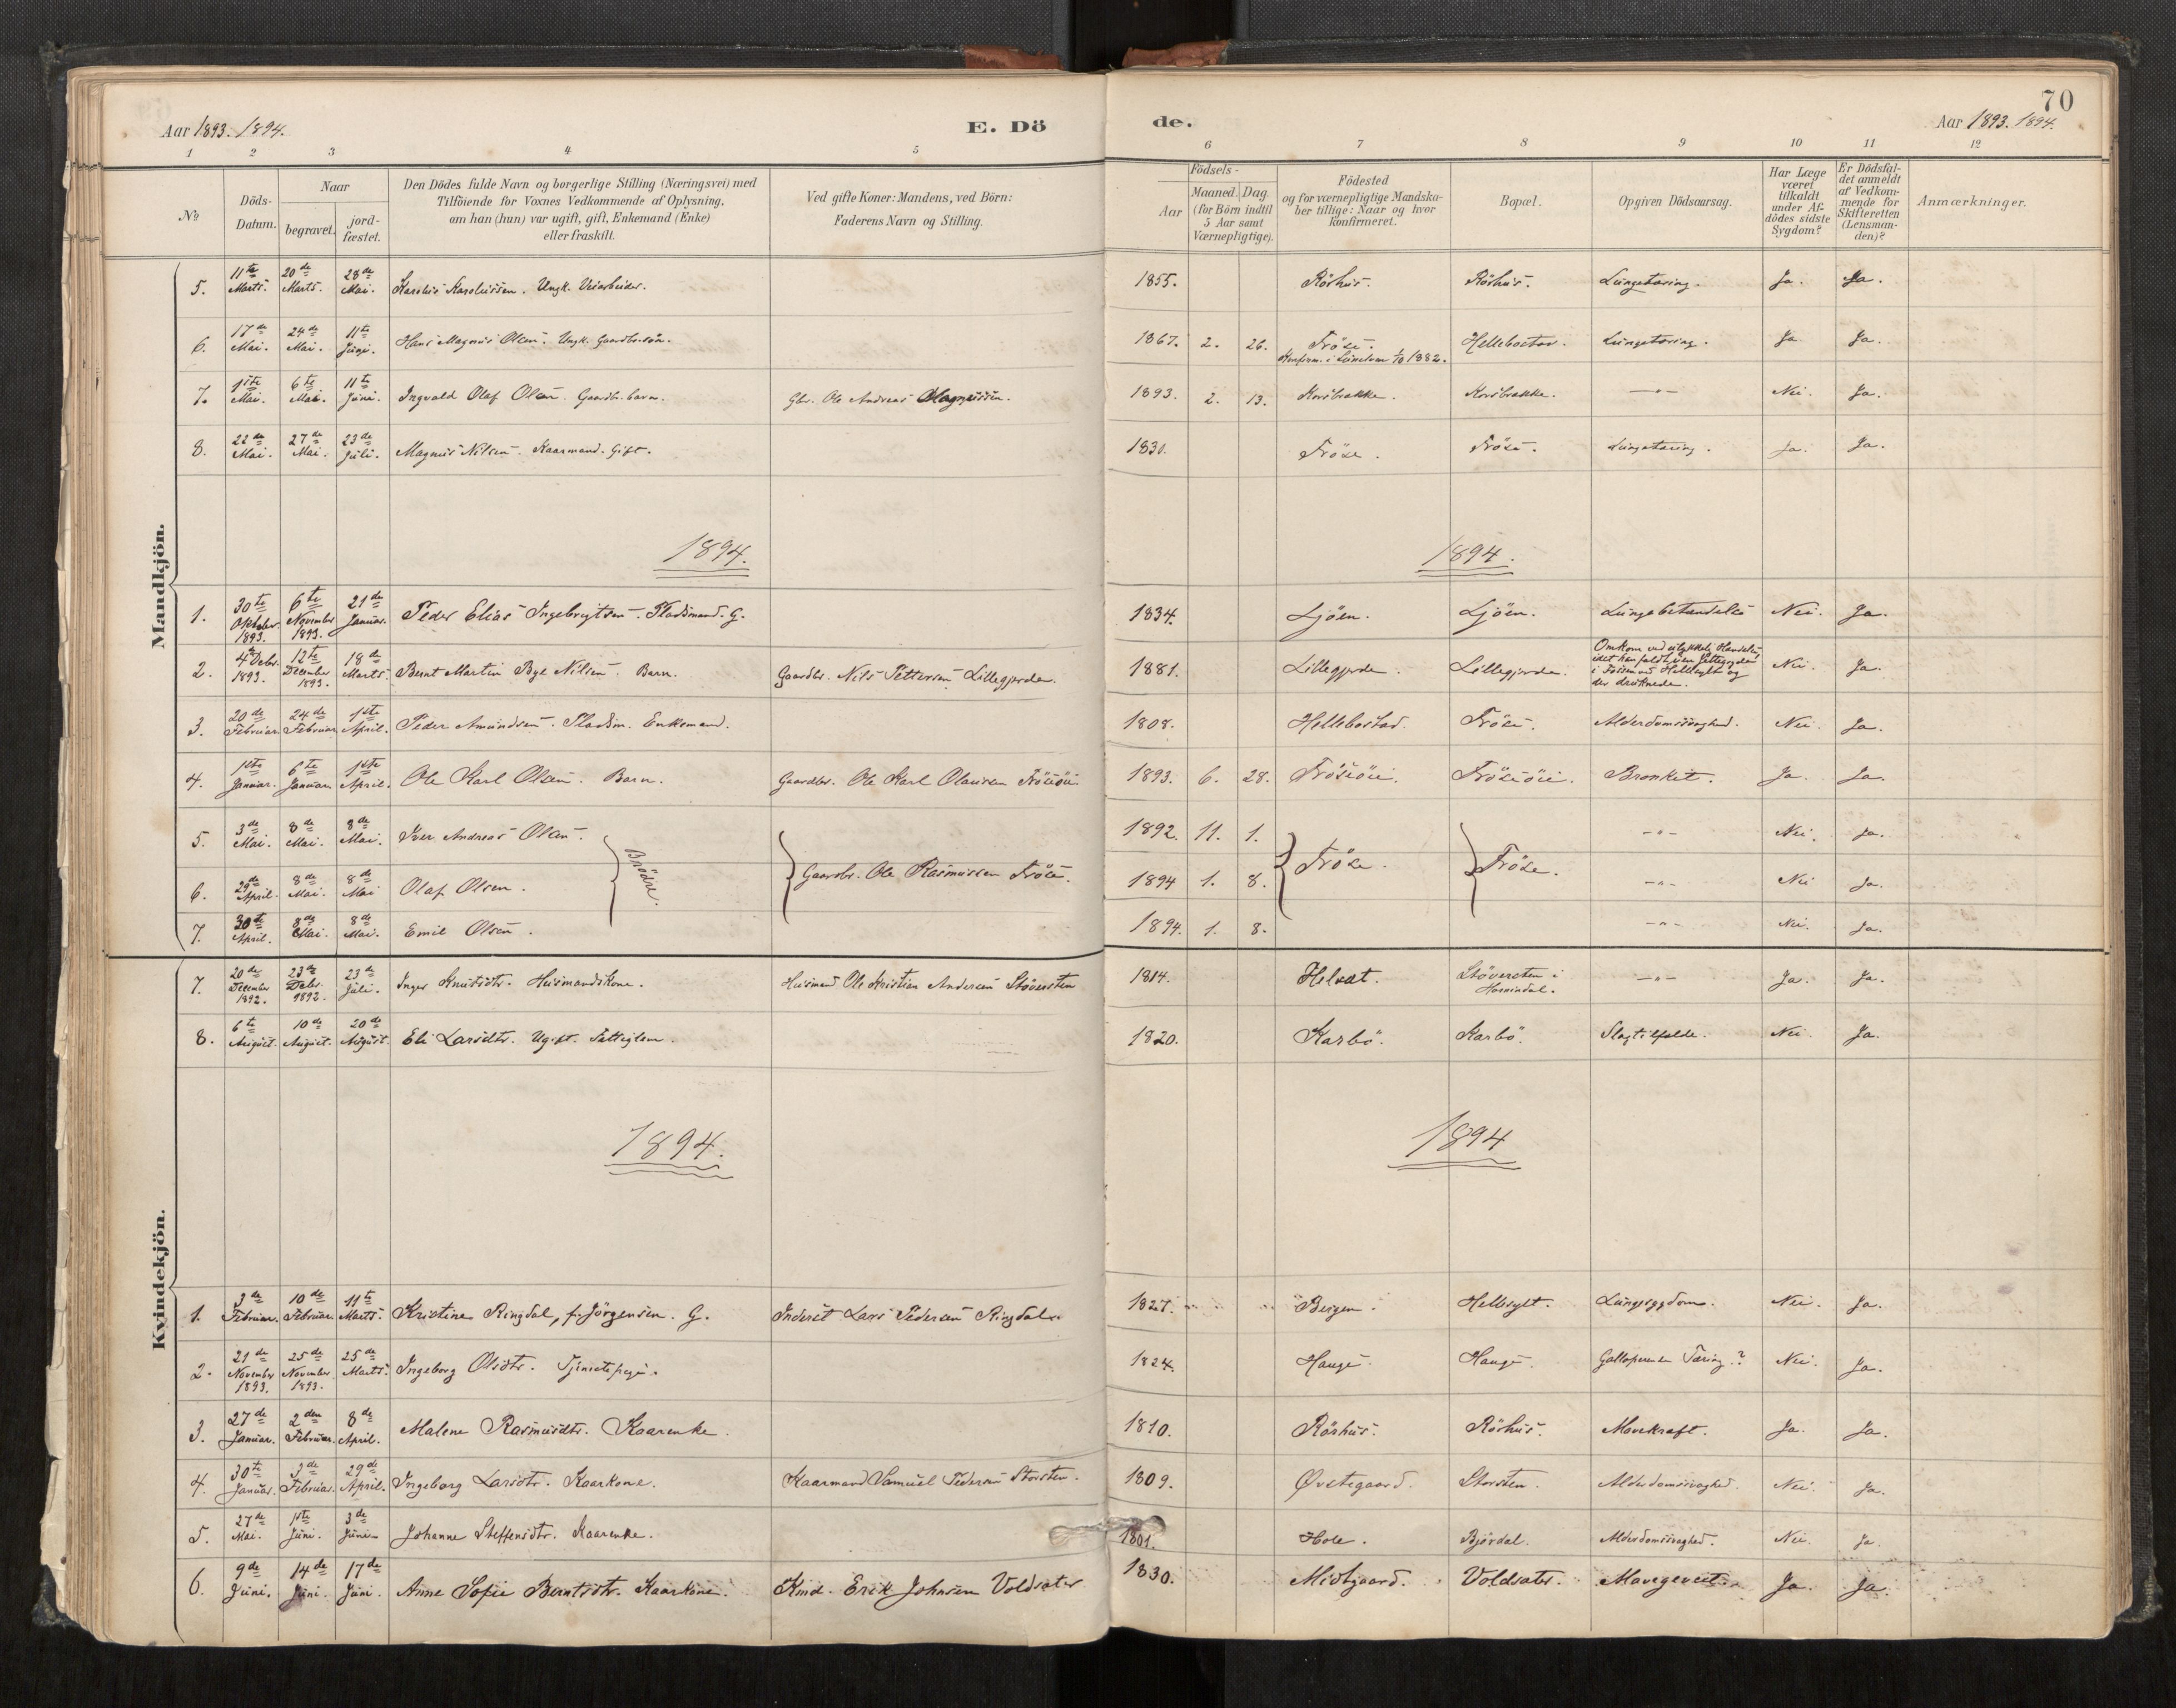 Aar 1893. 1894.
E. Dö
de.
70
Aar 1893. 1894.
1 2 3 4 5 6 7 8 9 10 11 12
№
Döds-
Datum.
Naar
begravet.
jord-
fæstet.
Den Dödes fulde Navn og borgerlige Stilling (Næringsvei) med
Tilföiende for Voxnes Vedkommende af Oplysning,
om han (hun) var ugift, gift, Enkemand (Enke)
eller fraskilt.
Ved gifte Koner: Mandens, ved Börn:
Faderens Navn og Stilling.
Födsels-
Aar
Maaned. Dag.
(for Börn indtil
5 Aar samt
Værnepligtige).
Födested
og for værnepligtige Mandska-
ber tillige: Naar og hvor
konfirmeret.
Bopæl.
Opgiven Dödsaarsag.
Har Læge
været
tilkaldt
under Af-
dödes sidste
Sygdom?
Er Dödsfal-
det anmeldt
af Vedkom-
mende for
Skifteretten
(Lensman-
den)?
Anmærkninger.
Mandkjön.
5. 11te Marts. 20de Marts. 28de Mai. Karolus Karolussen. Ungk. Veiarbeider. 1855. Röshus. Röshus. Lungetæring. Ja. Ja.
6. 17de Mai. 24de Mai. 11te Juni. Hans Magnus Olsen. Ungk. Gaardbr.sön. 1867. 2. 26. Tröse. Hellebostad. Lungetæring. Ja. Ja.
Konfirm. i 1882.
7. 1ste Mai. 6te Mai. 11te Juni. Ingvald Olaf Olsen. Gaardbr. barn. Gbr. Ole Andreas Magnussen. 1893. 2. 13. Korsbrække. Korsbrække. —"— Nei. Ja.
8. 22de Mai. 27de Mai. 23de Juli. Magnus Nilsen. Kaarmand. Gift. 1830. Tröse. Tröse. Lungetæring. Ja. Ja.
1894.
1894.
1. 30te Oktober 1893. 6te November 1893. 21de Januar. Peder Elias Ingebrigtsen. Pladsmand. G. 1834. Ljöen. Ljöen. Lungebetændelse Nei. Ja.
2. 4de Decbr. 1893. 12te December 1893. 18de Marts. Bernt Martin Bye Nilsen. Barn. Gaardbr. Nils Pettersen Lillegjerde. 1881. Lillegjerde. Lillegjerde. Omkom ved ulykkelig Hændelse
idet han faldt i en Jettegryde
i Fossen ved Hellesylt og
der druknede. Nei. Ja.
3. 20de Februar. 24de Februar. 1ste April. Peder Amundsen. Pladsm. Enkemand. 1808. Hellebostad. Tröse. Alderdomssvaghed. Nei. Ja.
4. 1ste Januar. 6te Januar. 1ste April. Ole Karl Olsen. Barn. Gaardbr. Ole Karl Olaussen Tröseöie. 1893. 6. 28. Tröseöie. Tröseöie. Bronkit. Ja. Ja.
5. 3de Mai. 8de Mai. 8de Mai. Iver Andreas Olsen. 1892. 11. 1. —"— Nei. Ja.
Brödre.
Gaardbr. Ole Rasmussen Tröse. Tröse. Tröse.
6. 29de April. 8de Mai. 8de Mai Olaf Olsen. 1894 1. 8. —"— Nei Ja.
7. 30te April. 8de Mai. 8de Mai. Emil Olsen. 1894. 1. 8. —"— Nei. Ja.
Kvindekjön.
7. 20de December 1892. 23de Decbr. 1892. 23de Juli. Inger Knutsdtr. Husmandskone. Husmand Ole Kristian Andersen Stöversten 1814. Helset. Stöversten i
Hornindal. —"— Ja. Ja.
8. 6te August. 10de August. 20de August. Eli Larsdtr. Ugift. Fattiglem. 1820. Karbö. Karbö. Slagtilfælde. Nei. Ja.
1894.
1894
1. 3de Februar. 10de Februar. 11te Marts. Kristine Ringdal, f. Jörgensen. G. Inderst Lars Pedersen Ringdal. 1827. Bergen. Hellesylt. Lungesygdom. Nei. Ja.
2. 21de November 1893. 25de November 1893. 25de Marts. Ingeborg Olsdtr. Tjenestepige. 1824. Hauge. Hauge. Galloperende Tæring? Nei. Ja.
3. 27de Januar. 2den Februar. 8de April. Malene Rasmusdtr. Kaarenke. 1810. Röshus. Röshus. Mavekræft. Ja. Ja.
4. 30te Januar. 3de Februar. 29de April. Ingeborg Larsdtr. Kaarkone. Kaarmand Samuel Pedersen Storsten. 1809. Øvstegaard. Storsten. Alderdomssvaghed. Nei. Ja.
5. 27de Mai. 1ste Juni. 3de Juni. Johanne Steffensdtr. Kaarenke. 1801. Hole. Björdal. Alderdomssvaghed. Nei. Ja.
6. 9de Juni. 14de Juni. 17de Juni. Anne Sofie Berntsdtr. Kaarkone. Kmd. Erik Johnsen Voldsæter 1830. Midtgaard. Voldsæter. Mavegevext. Ja. Ja.